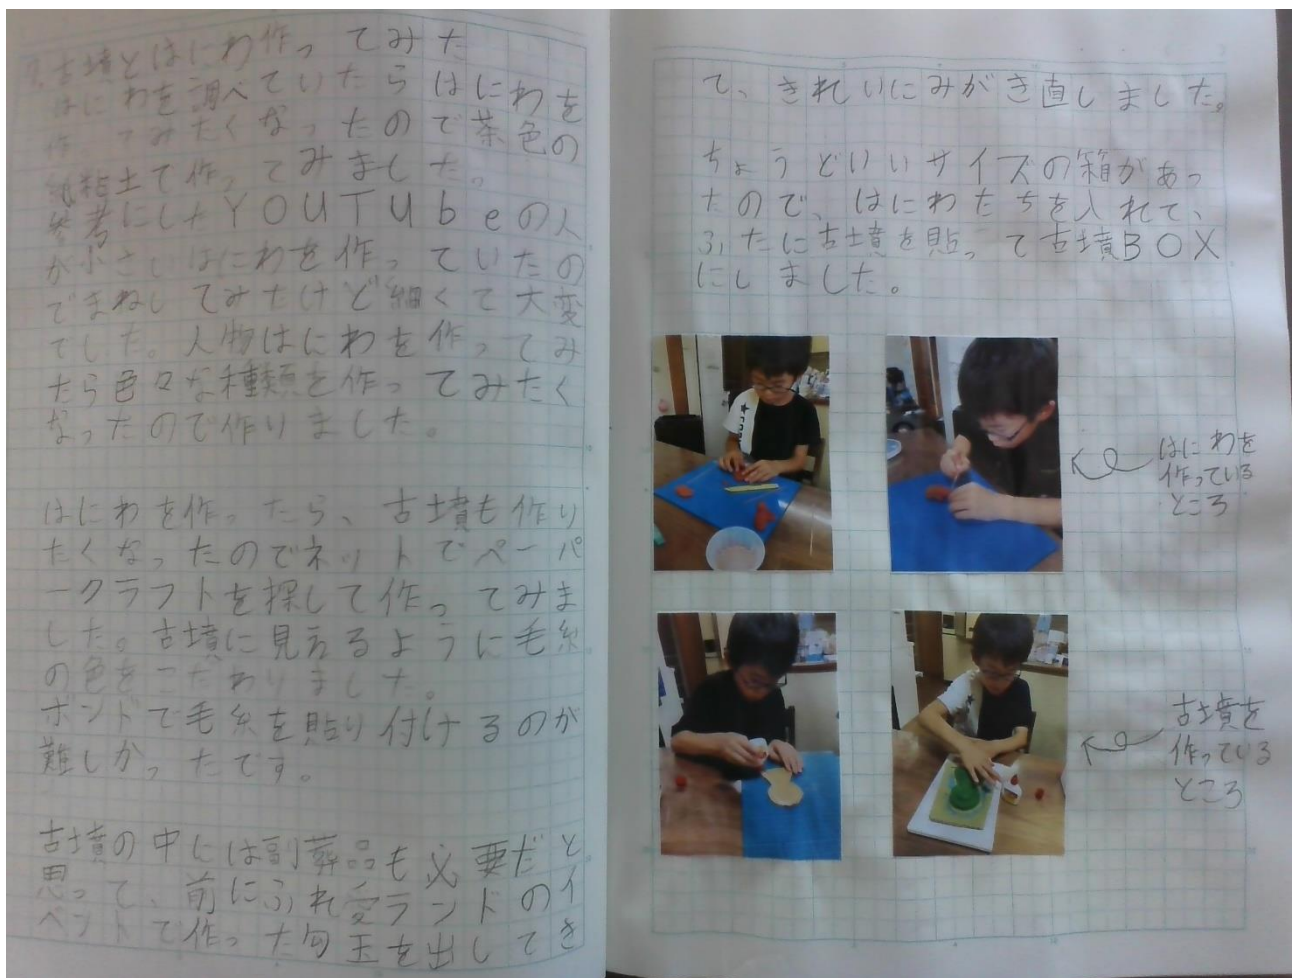 古墳とはにわ作ってみた
はにわを調べていたらはにわを
作ってみたくなったので茶色の
紙粘土で作ってみました。
参考にしたYOUTUbeの人
が小さいはにわを作っていたの
でまねしてみたけど細くて大変
でした。人物はにわを作ってみ
たら色々な種類を作ってみたく
なったので作りました。
はにわを作ったら、古墳も作り
たくなったのでネットでペーパ
ークラフトを探して作ってみま
した。古墳に見えるように毛糸
の色をこだわりました。
ボンドで毛糸を貼り付けるのが
難しかったです。
古墳の中には副葬品も必要だと
思って、前にふれ愛ランドのイ
ベントで作った勾玉を出してき
て、きれいにみがき直しました。
ちょうどいいサイズの箱があっ
たので、はにわたちを入れて、
ふたに古墳を貼って古墳BOX
にしました。
はにわを
作っている
ところ
古墳を
作っている
ところ